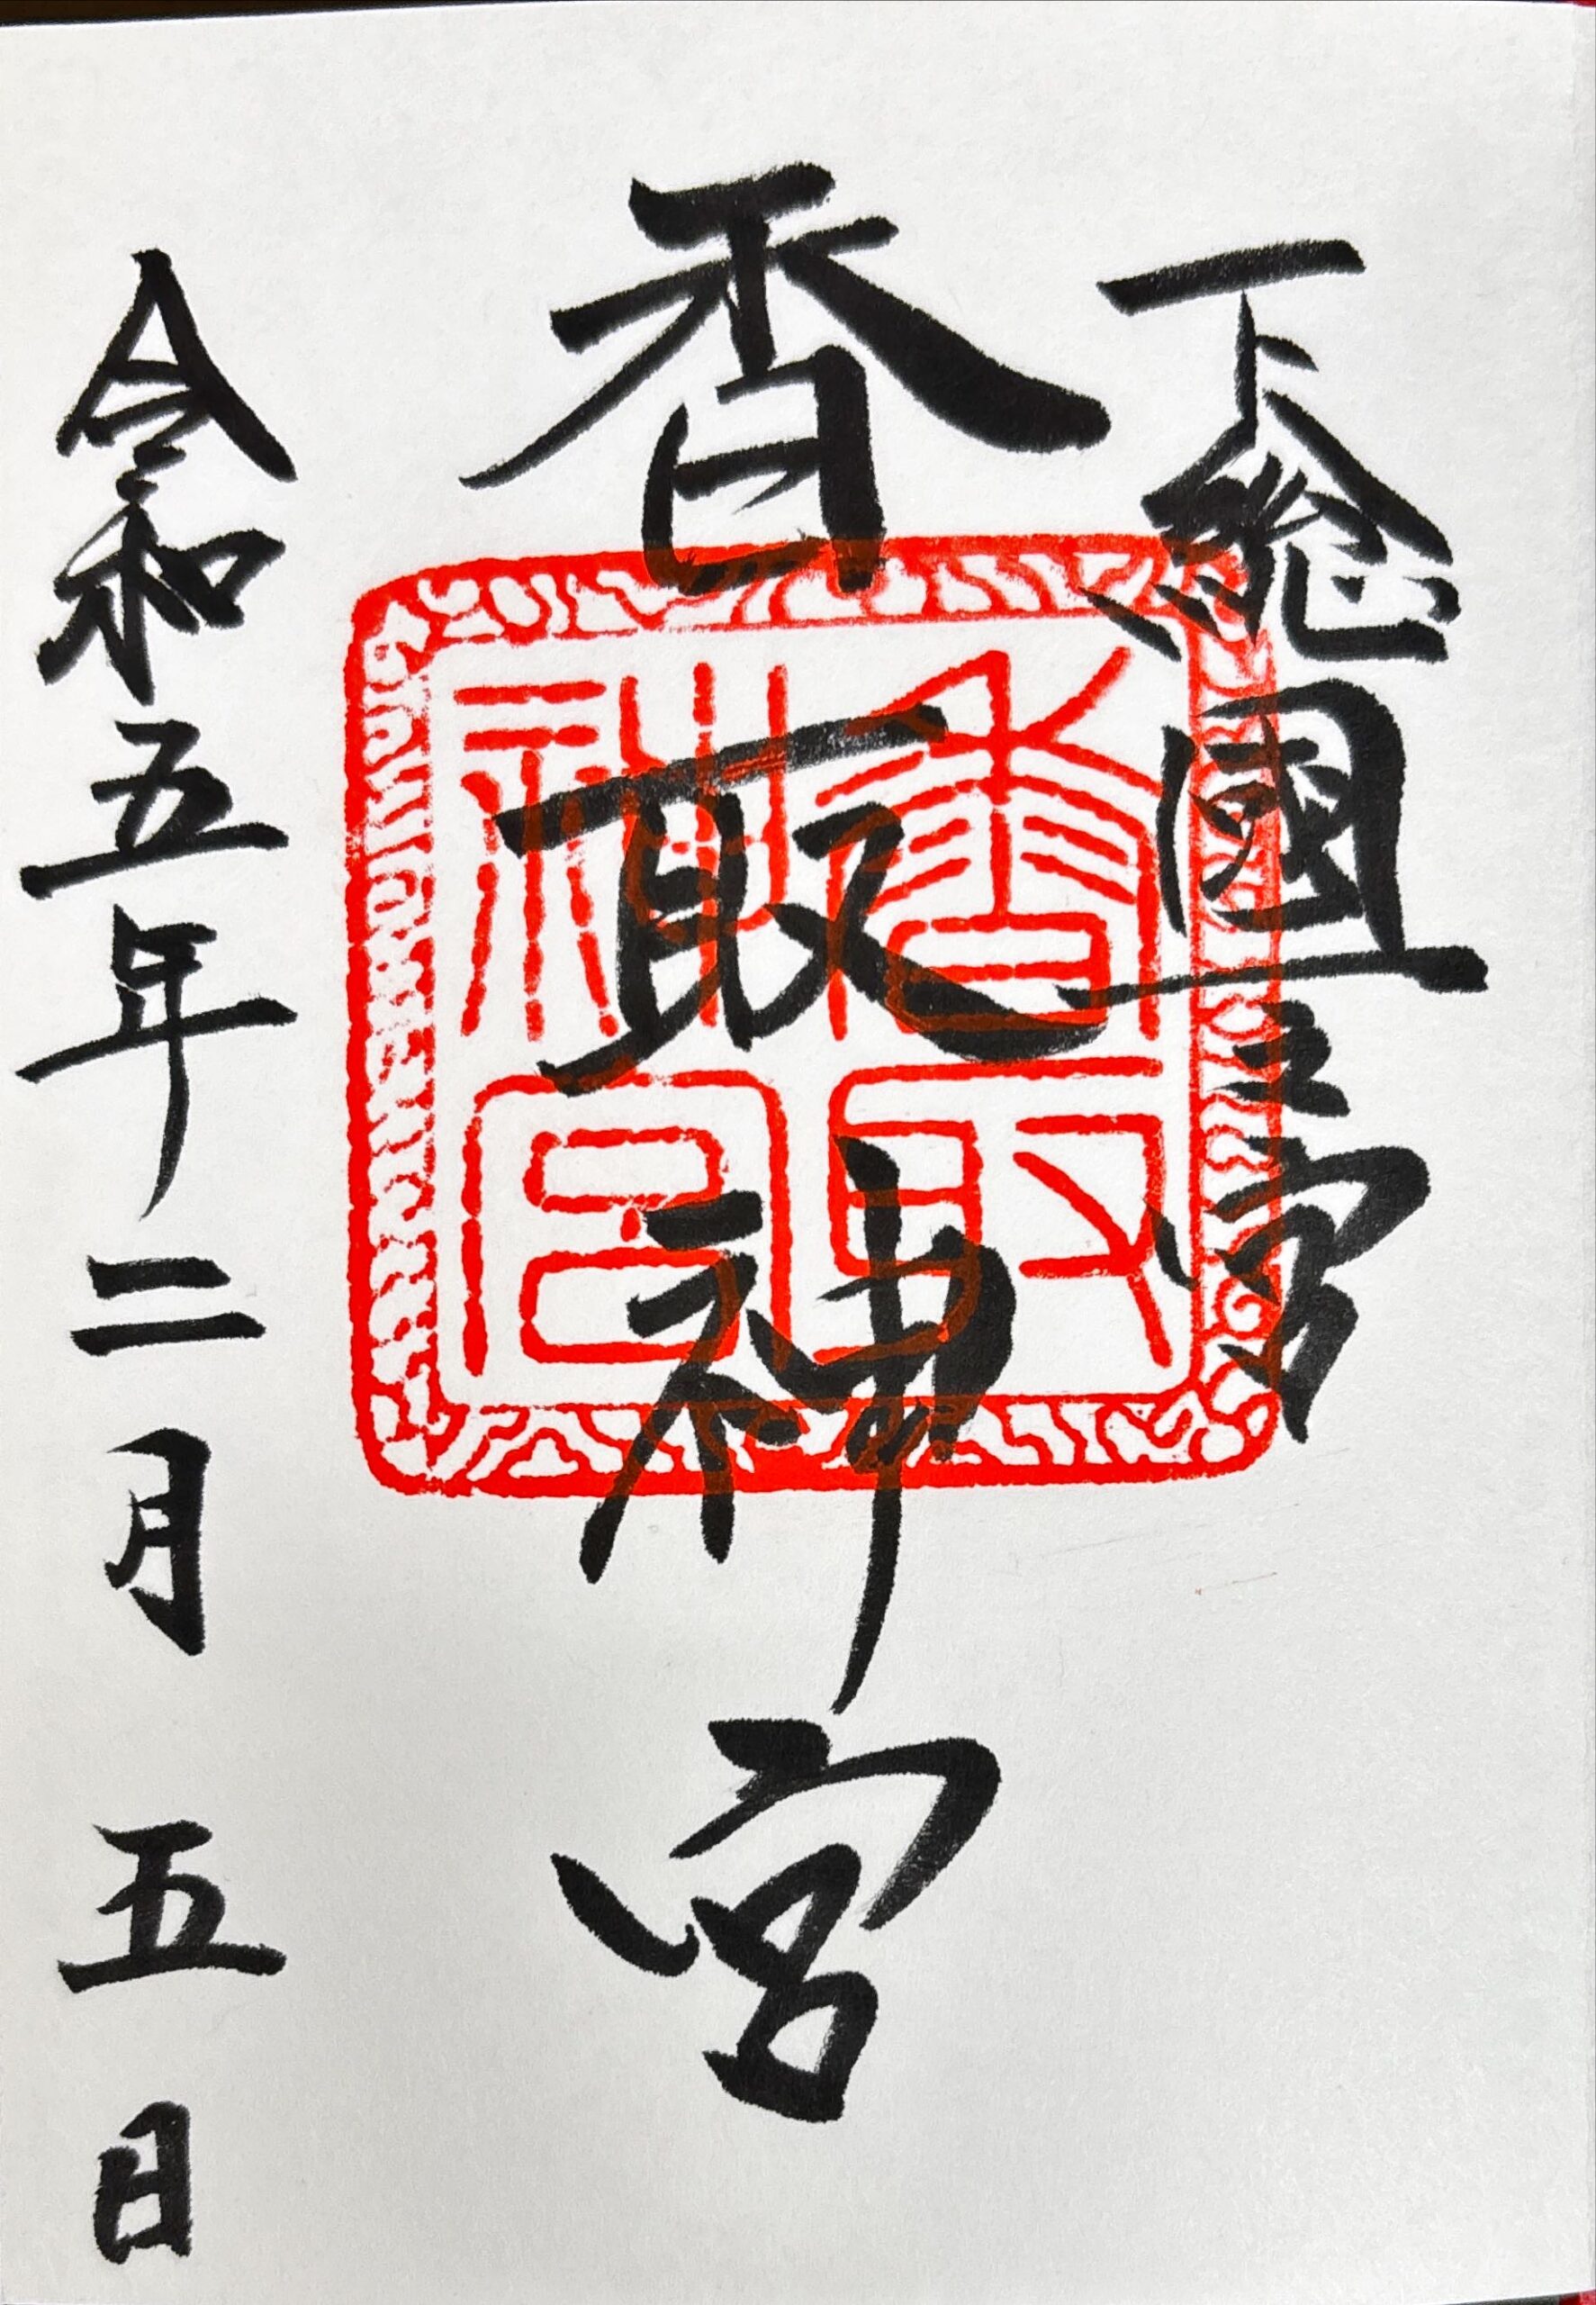 下総國一之宮
香取神宮
令和五年二月五日
香取神宮